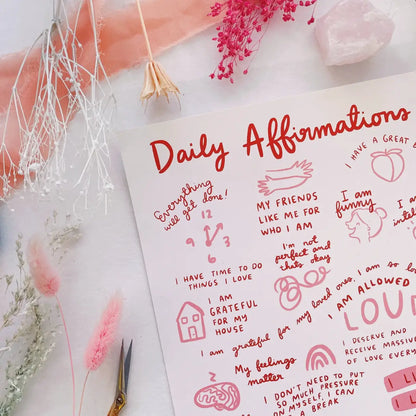 Daily Affirmations
Everything
will get done!
12
9 3
6
I HAVE TIME TO DO
THINGS I LOVE
MY FRIENDS
LIKE ME FOR
WHO I AM
I HAVE A GREAT
I am
funny
I am
I'm not
perfect and
thats okay
I AM
GRATEFUL
FOR MY
HOUSE
I am grateful for my loved ones, I am so
I AM ALLOWED
LOU
I DESERVE AND
RECEIVE MASSIVE
OF LOVE EVERY
My feelings
matter
I DON'T NEED TO PUT
SO MUCH PRESSURE
ON MYSELF, I CAN
A BREAK
I
I